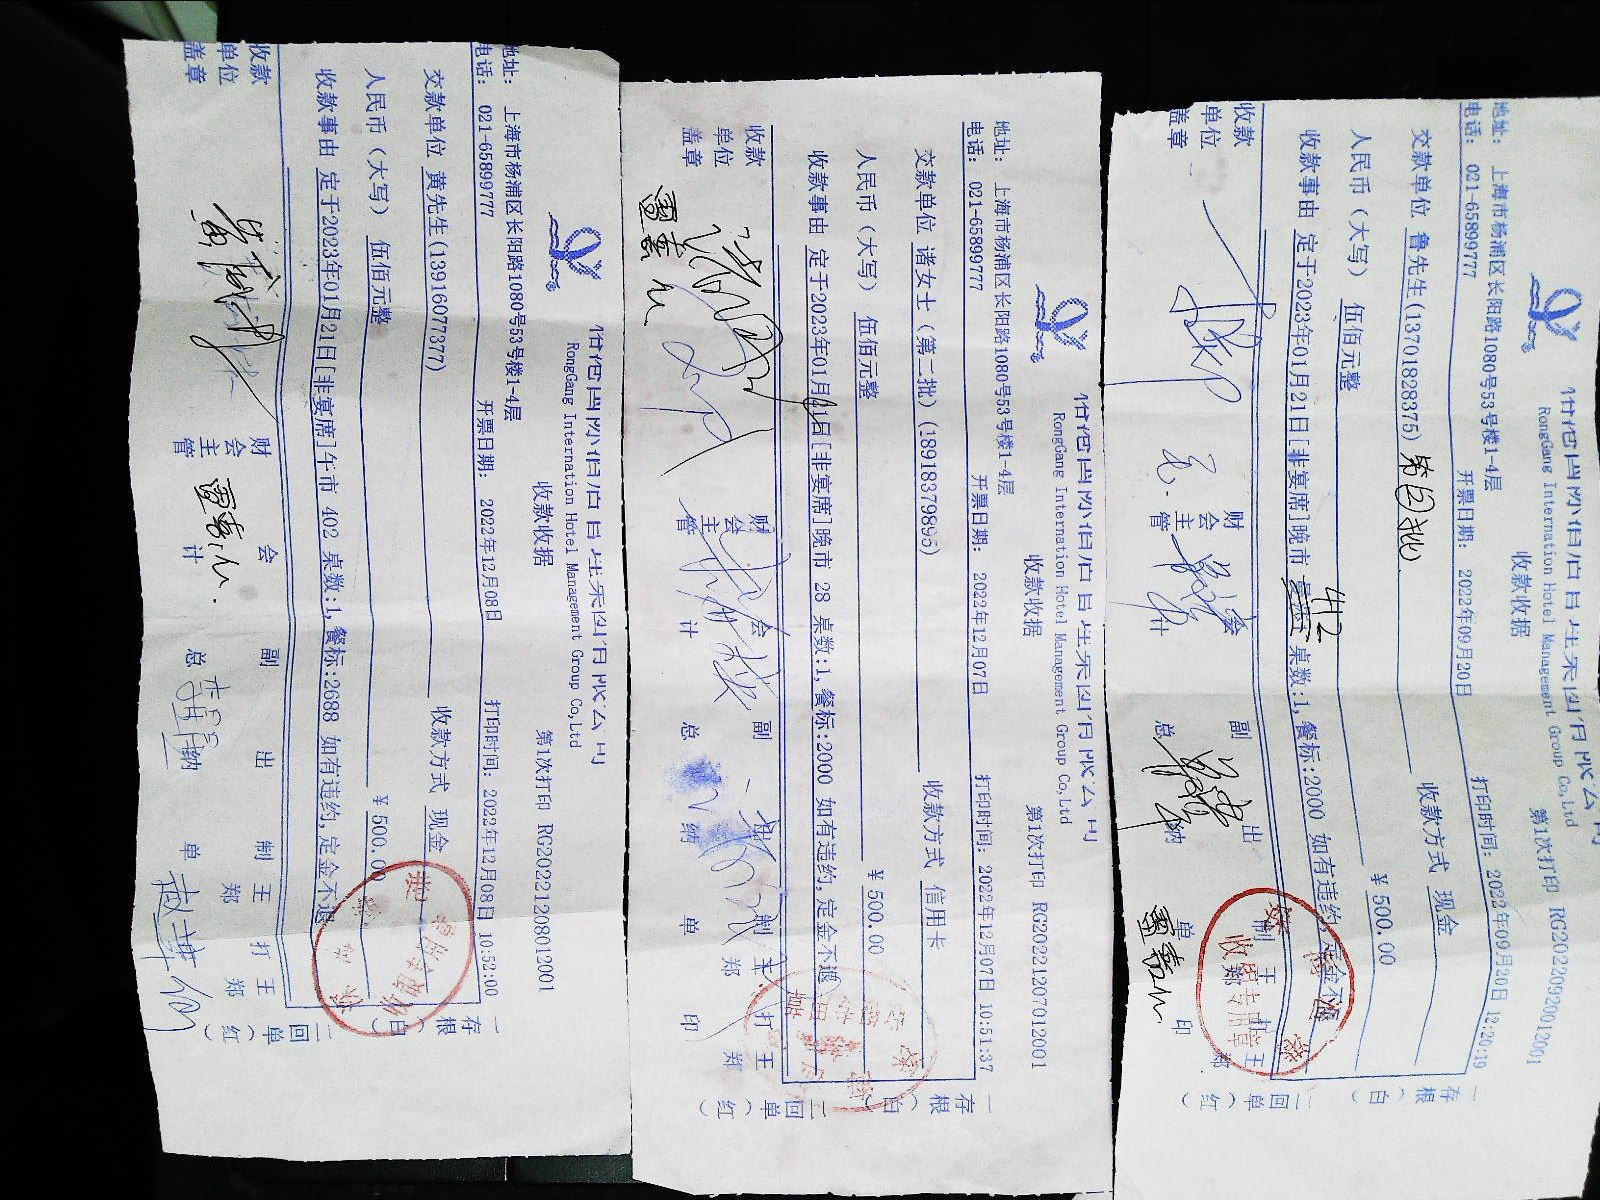 RongGang International Hotel Management Group Co,Ltd
收款收据
第1次打印 RG20221208012001
地址： 上海市杨浦区长阳路1080号53号楼1-4层
电话： 021-65899777
开票日期： 2022年12月08日
打印时间：2022年12月08日 10:52:00
交款单位 黄先生(13916077377)
收款方式 现金
人民币（大写） 伍佰元整
￥500.00
收款事由 定于2023年01月21日[非宴席]午市 402 桌数:1,餐标:2688 如有违约,定金不退
收款单位盖章
财会主管
会计
副总
出纳
制单
王郑
打
王郑
一存根（白）
二回单（红）
RongGang International Hotel Management Group Co,Ltd
收款收据
第1次打印 RG20221207012001
地址： 上海市杨浦区长阳路1080号53号楼1-4层
电话： 021-65899777
开票日期： 2022年12月07日
打印时间：2022年12月07日 10:51:37
交款单位 诸女士（第二批）(18918379895)
收款方式 信用卡
人民币（大写） 伍佰元整
￥500.00
收款事由 定于2023年01月21日[非宴席]晚市 28 桌数:1,餐标:2000 如有违约,定金不退
收款单位盖章
财会主管
会计
副总
纳
制单
王郑
打印
王郑
一存根（白）
二回单（红）
RongGang International Hotel Management Group Co,Ltd
收款收据
第1次打印 RG20220920012001
地址： 上海市杨浦区长阳路1080号53号楼1-4层
电话： 021-65899777
开票日期： 2022年09月20日
打印时间：2022年09月20日 12:20:19
交款单位 鲁先生(13701828375) 第二批
收款方式 现金
人民币（大写） 伍佰元整
￥500.00
收款事由 定于2023年01月21日[非宴席]晚市 412 桌数:1,餐标:2000 如有违约,定金不退
收款单位盖章
财会主管
会计
副总
出纳
制单
王郑
打印
王郑
一存根（白）
二回单（红）